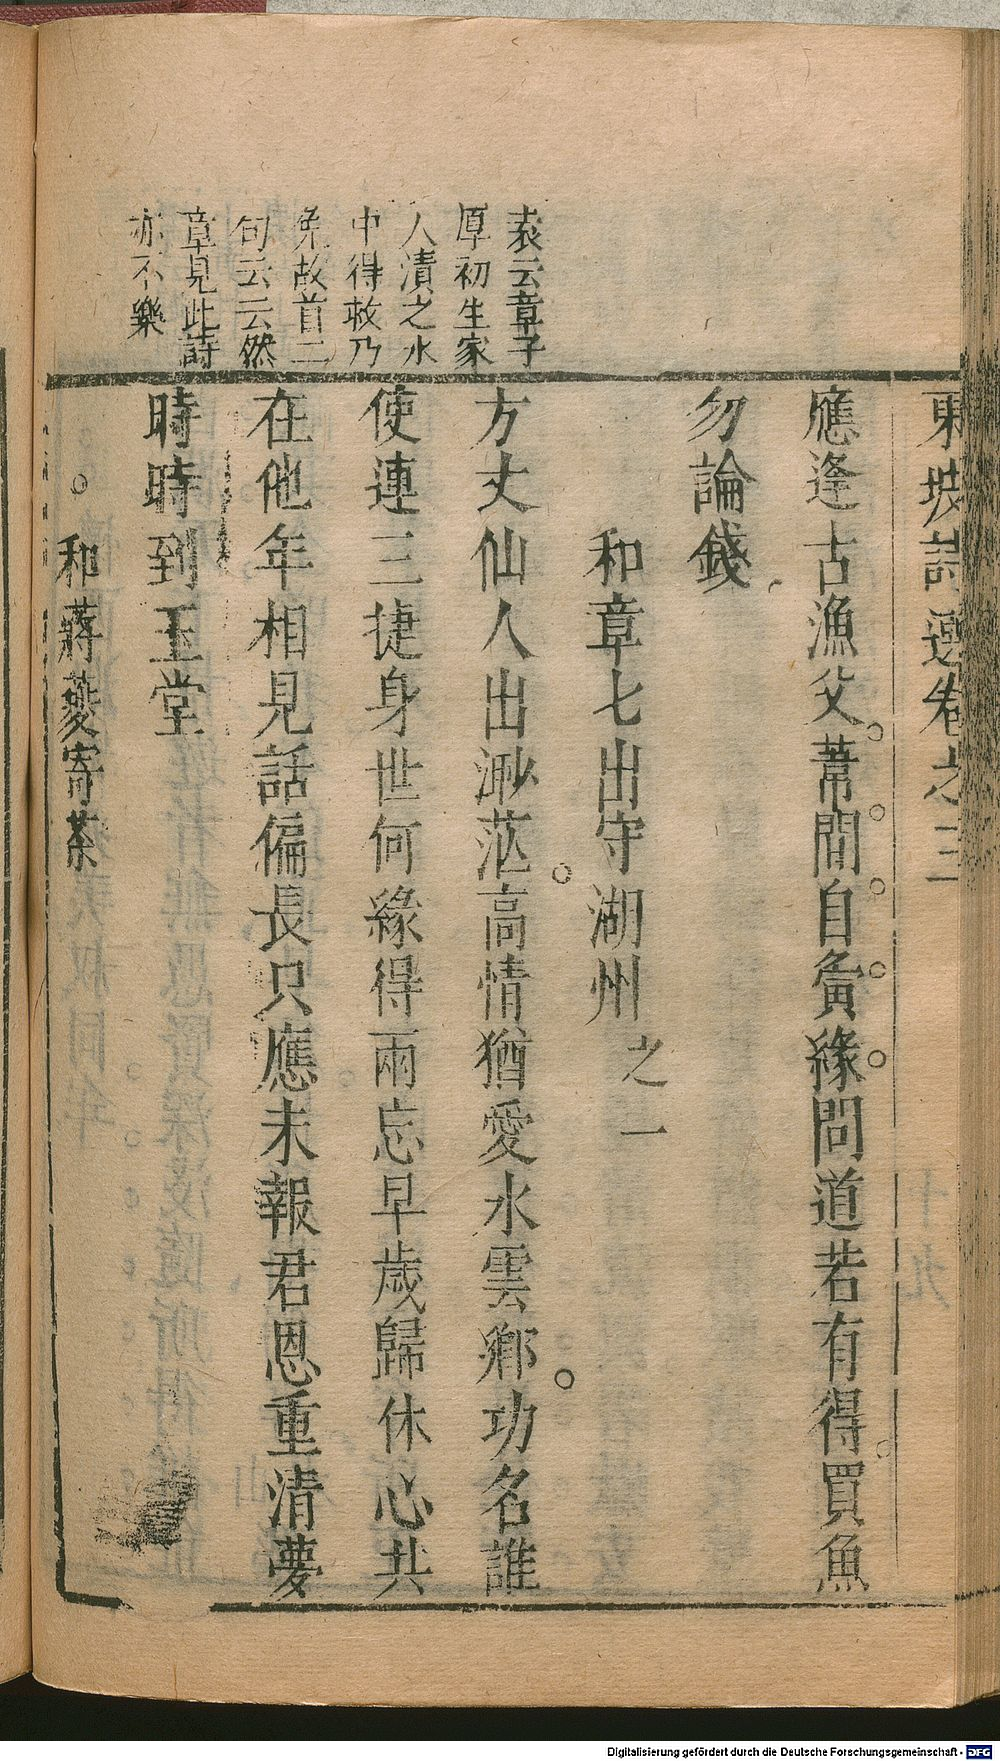 東坡詩選卷之三
應逢古漁父葦間自夤緣問道若有得買魚
勿論錢
和章七出守湖州之一
方丈仙人出渺茫高情猶愛水雲鄉功名誰
使連三捷身世何緣得兩忘早歲歸休心共
在他年相見話偏長只應未報君恩重清夢
時時到玉堂
和蔣夔寄茶
袁云章子
厚初生家
人漬之水
中得救乃
免故首二
句云云然
章見此詩
亦不樂
十九
Digitalisierung gefördert durch die Deutsche Forschungsgemeinschaft - DFG